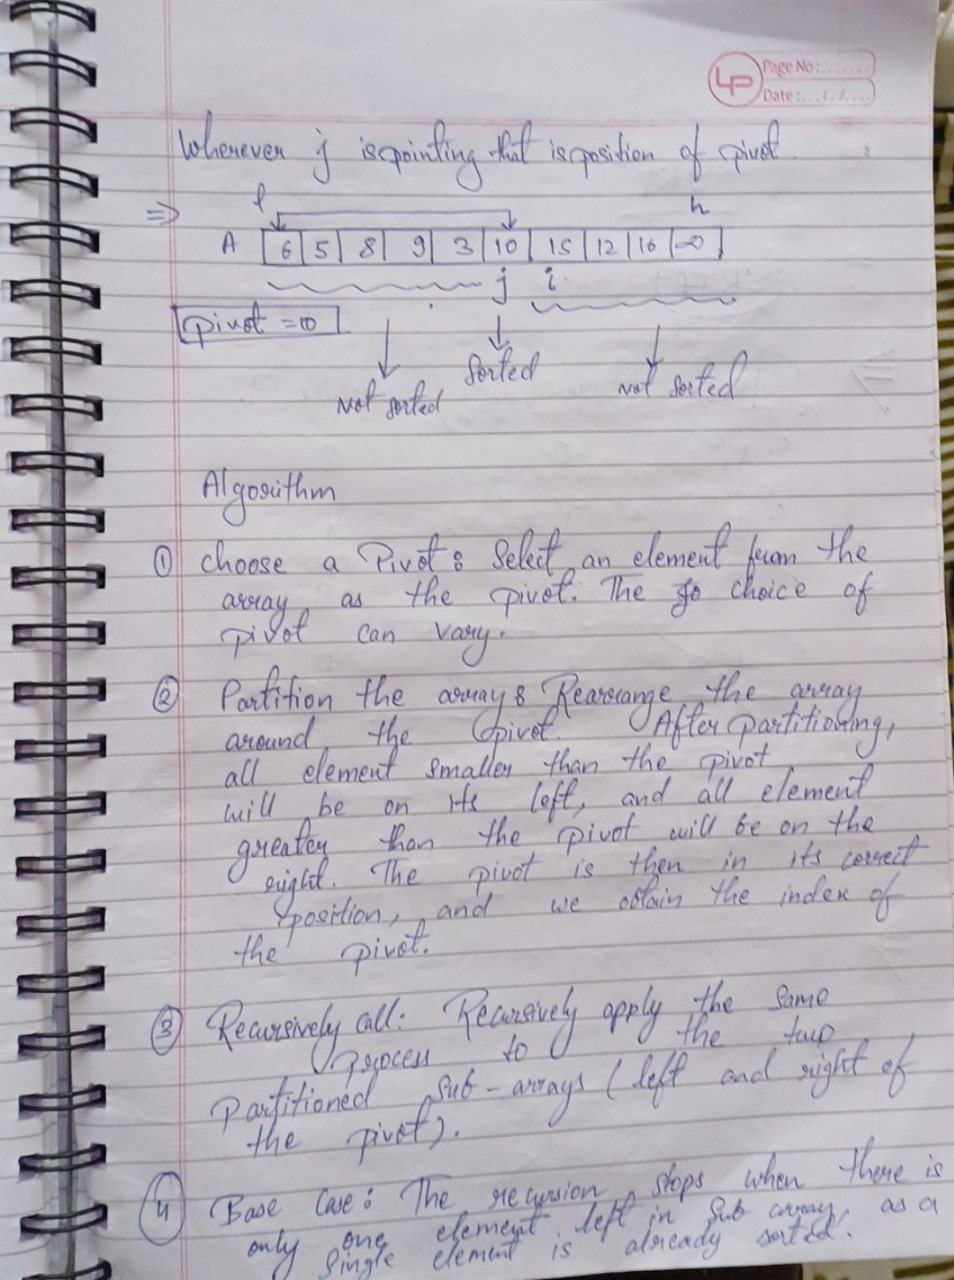 LP
Page No:.......
Date:.../.../....
Wherever j is pointing that is position of pivot.
l h
⇒
A 6 5 8 9 3 10 15 12 16 ∞
j i
pivot = 10
Sorted
Not sorted Not sorted
Algorithm
① Choose a Pivot: Select an element from the
array as the pivot. The choice of
pivot can vary.
② Partition the array: Rearrange the array
around the pivot. After partitioning,
all element smaller than the pivot
will be on its left, and all element
greater than the pivot will be on the
right. The pivot is then in its correct
position, and we obtain the index of
the pivot.
③ Recursively call: Recursively apply the same
process to the two
Partitioned Sub-arrays (left and right of
the pivot).
④ Base Case: The recursion stops when there is
only one element left in sub array, as a
single element is already sorted.